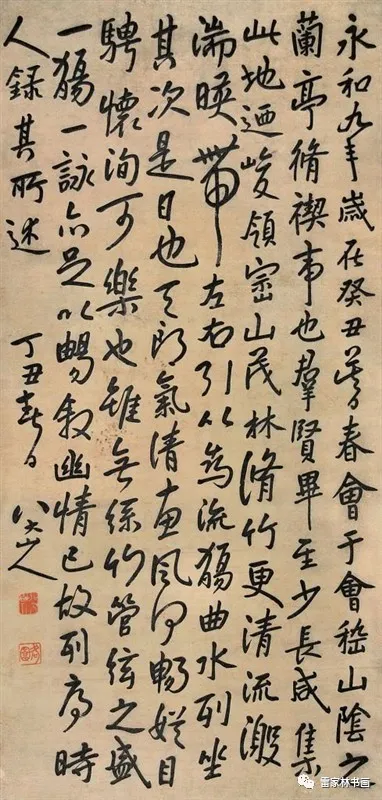 永和九年歲在癸丑暮春會于會嵇山陰之
蘭亭脩禊事也羣賢畢至少長咸集
此地迺峻領崇山茂林脩竹更清流激
湍暎帶左右引以為流觴曲水列坐
其次是日也天朗氣清惠風和暢娛目
騁懷洵可樂也雖無絲竹管絃之盛
一觴一詠亦足以暢敘幽情已故列序時
人錄其所述
丁丑春日
八大山人
雷家林书画